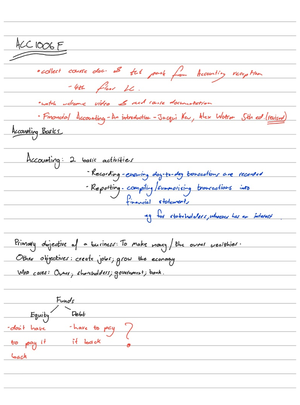 ACC1006F
• collect course doc. off tut point from Accounting reception
- 4th floor LC.
• watch welcome video & read course documentation
• Financial Accounting - An introduction - Jacqui Kew, Alex Watson 5th ed (revised)
Accounting Basics
Accounting: 2 basic activities
- Recording - ensuring day-to-day transactions are recorded
- Reporting - compiling/summarising transactions into
financial statements
eg for stakeholders, whoever has an interest
Primary objective of a business: To make money / the owner wealthier.
Other objectives: create jobs, grow the economy
Who cares: Owner, shareholders, government, bank.
Funds
Equity Debt
- don't have - have to pay ?
to pay it it back
back